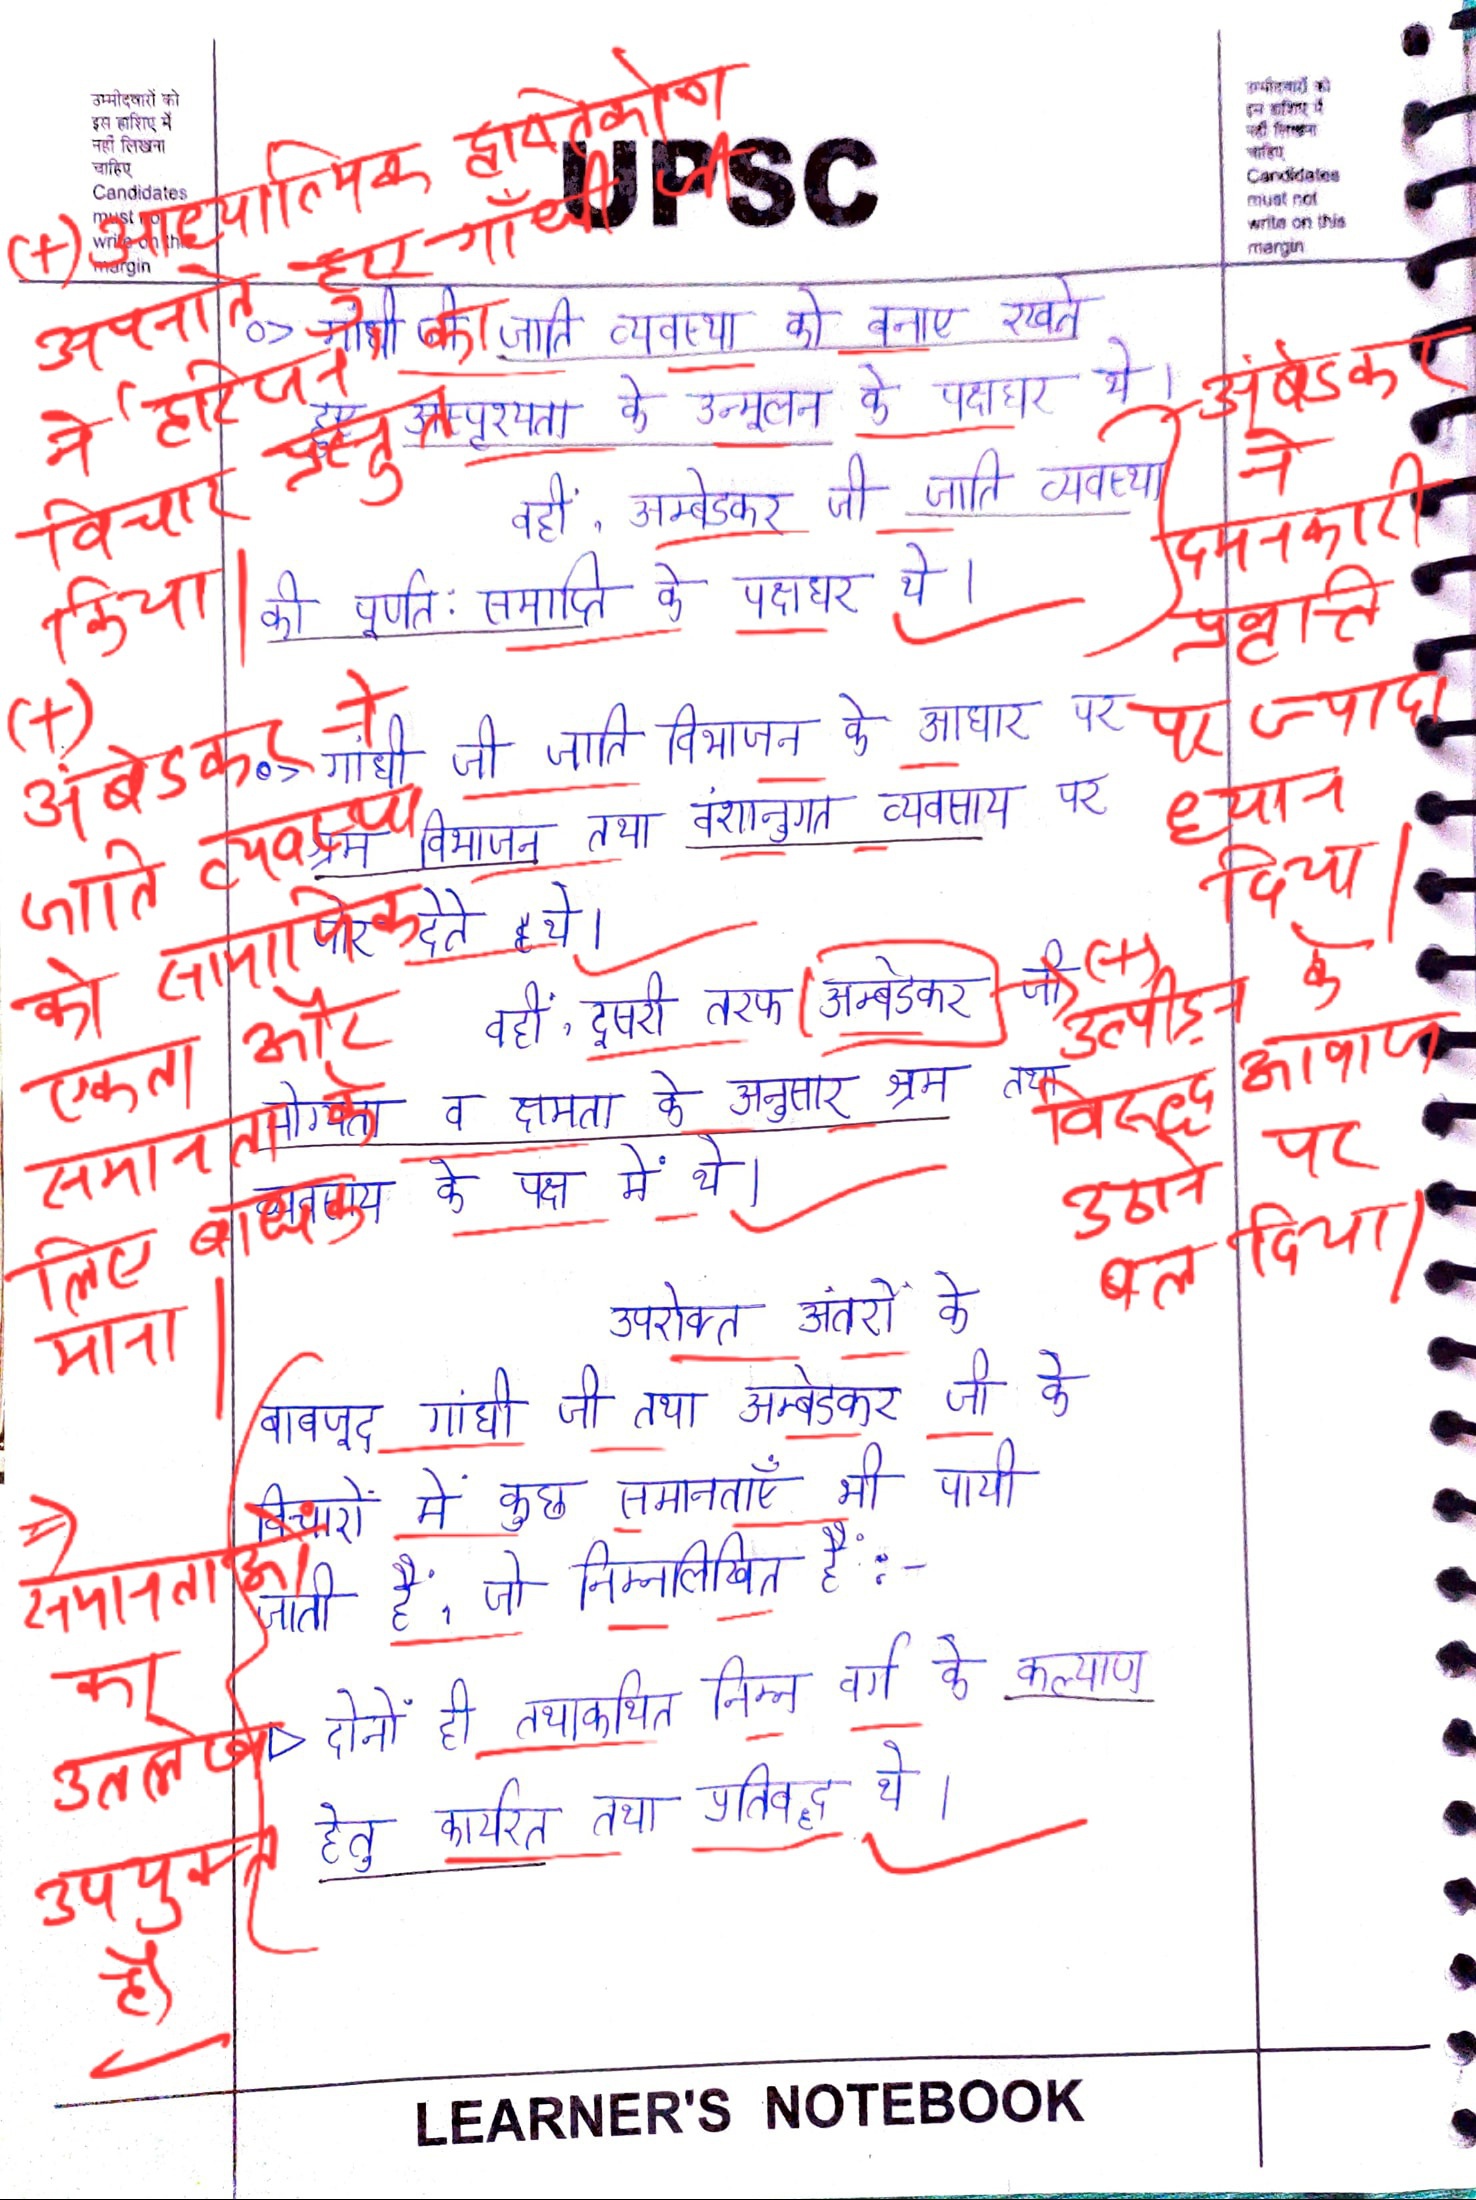 उम्मीदवारों को
इस हाशिए में
नहीं लिखना
चाहिए
Candidates
must not
write on this
margin
UPSC
उम्मीदवारों को
इस हाशिए में
नहीं लिखना
चाहिए
Candidates
must not
write on this
margin
(+) आध्यात्मिक दृष्टिकोण
अपनाते हुए गाँधी जी
ने 'हरिजन' का
विचार प्रस्तुत
किया।
गांधी जी जाति व्यवस्था को बनाए रखते
हुए अस्पृश्यता के उन्मूलन के पक्षधर थे।
वहीं, अम्बेडकर जी जाति व्यवस्था
की पूर्णत: समाप्ति के पक्षधर थे।
अंबेडकर
ने
दमनकारी
प्रवृत्ति
पर ज्यादा
ध्यान
दिया।
(+)
अंबेडकर ने
जाति व्यवस्था
को सामाजिक
एकता और
समानता के
लिए बाधक
माना।
गांधी जी जाति विभाजन के आधार पर
श्रम विभाजन तथा वंशानुगत व्यवसाय पर
जोर देते थे।
वहीं, दूसरी तरफ अम्बेडकर जी
योग्यता व क्षमता के अनुसार श्रम तथा
व्यवसाय के पक्ष में थे।
(+)
उत्पीड़न के
विरुद्ध आवाज
उठाने पर
बल दिया।
उपरोक्त अंतरों के
बावजूद गांधी जी तथा अम्बेडकर जी के
विचारों में कुछ समानताएँ भी पायी
जाती हैं, जो निम्नलिखित हैं :-
दोनों ही तथाकथित निम्न वर्ग के कल्याण
हेतु कार्यरत तथा प्रतिबद्ध थे।
⇒
समानताओं
का
उल्लेख
उपयुक्त
है।
LEARNER'S NOTEBOOK